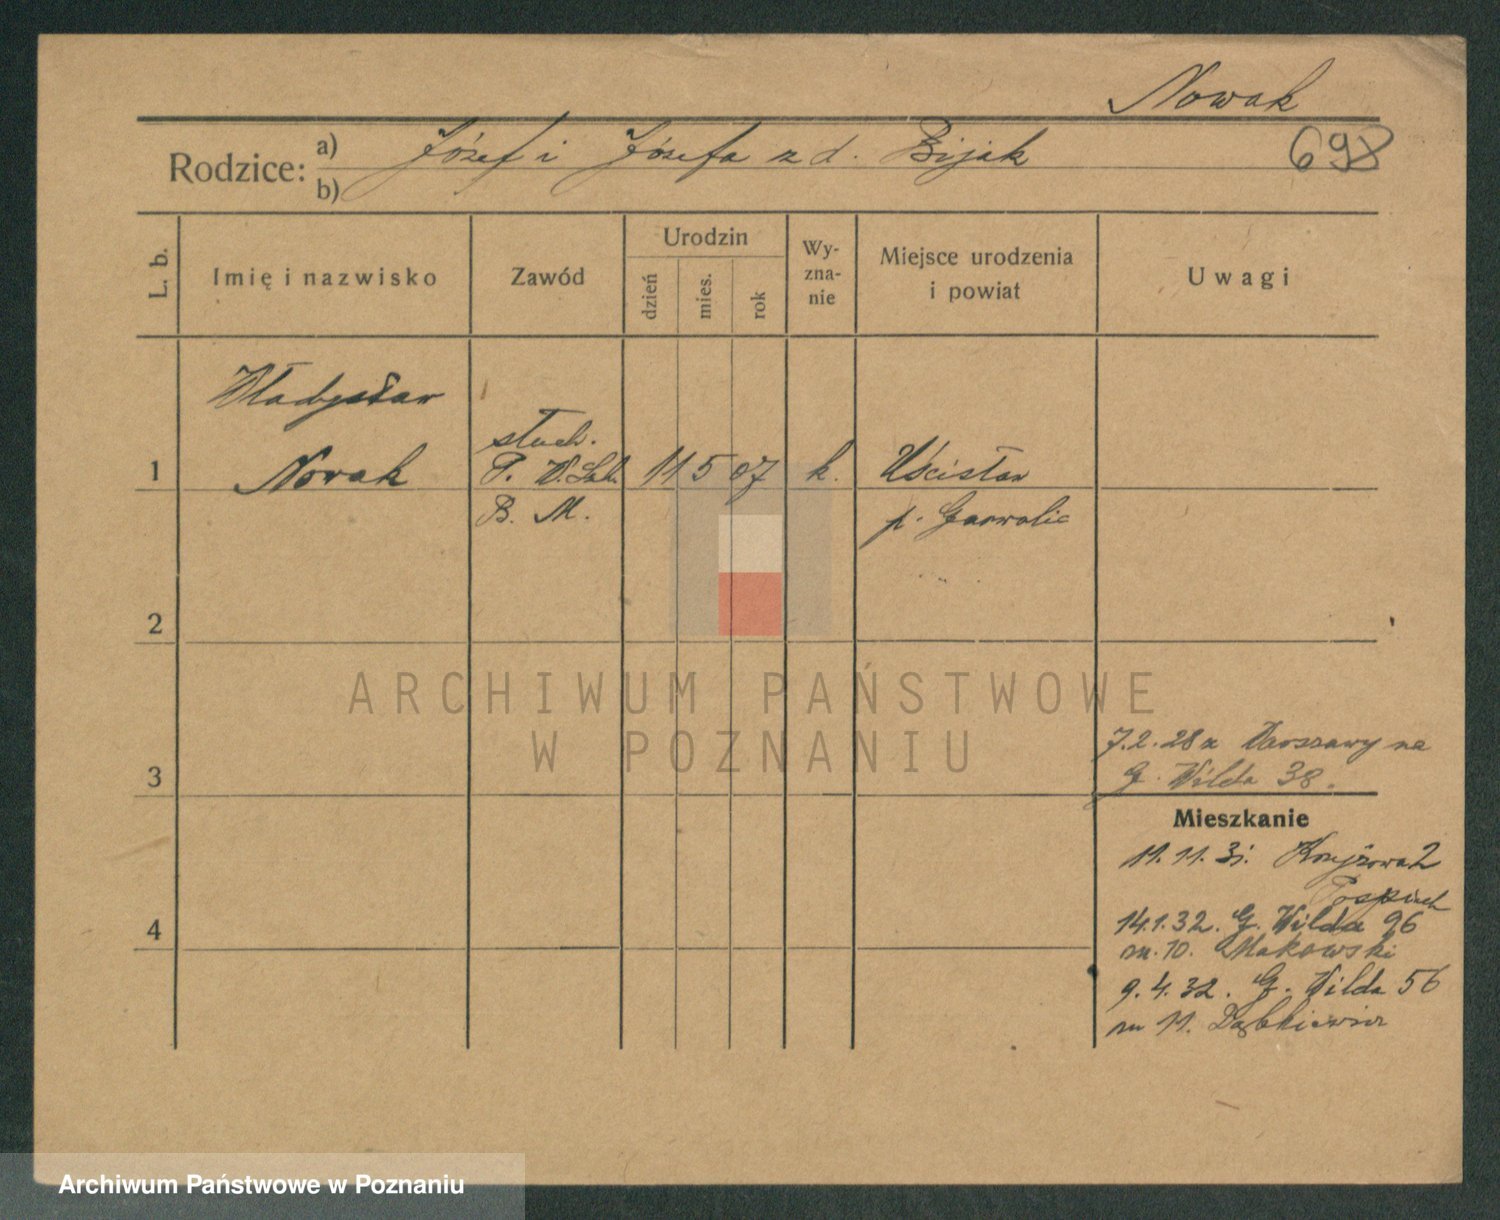 Nowak
698
Rodzice: a) Józef i Józefa z d. Bijak
b)
L. b.
Imię i nazwisko
Zawód
Urodzin
dzień
mies.
rok
Wy-
zna-
nie
Miejsce urodzenia
i powiat
Uwagi
Władysław
słuch.
1 Nowak P. W. Szk. 11 5 07 k. Uścisław
B. M. p. Garwolin
2
ARCHIWUM PAŃSTWOWE
W POZNANIU
7.2.28 z Warszawy na
3 G. Wilda 38.
Mieszkanie
11.11.31. Krzyżowa 2
14.1.32. G. Wilda 96
4 m. 10. Makowski
9.4.32. G. Wilda 56
m 11. Dąbkiewicz
Archiwum Państwowe w Poznaniu